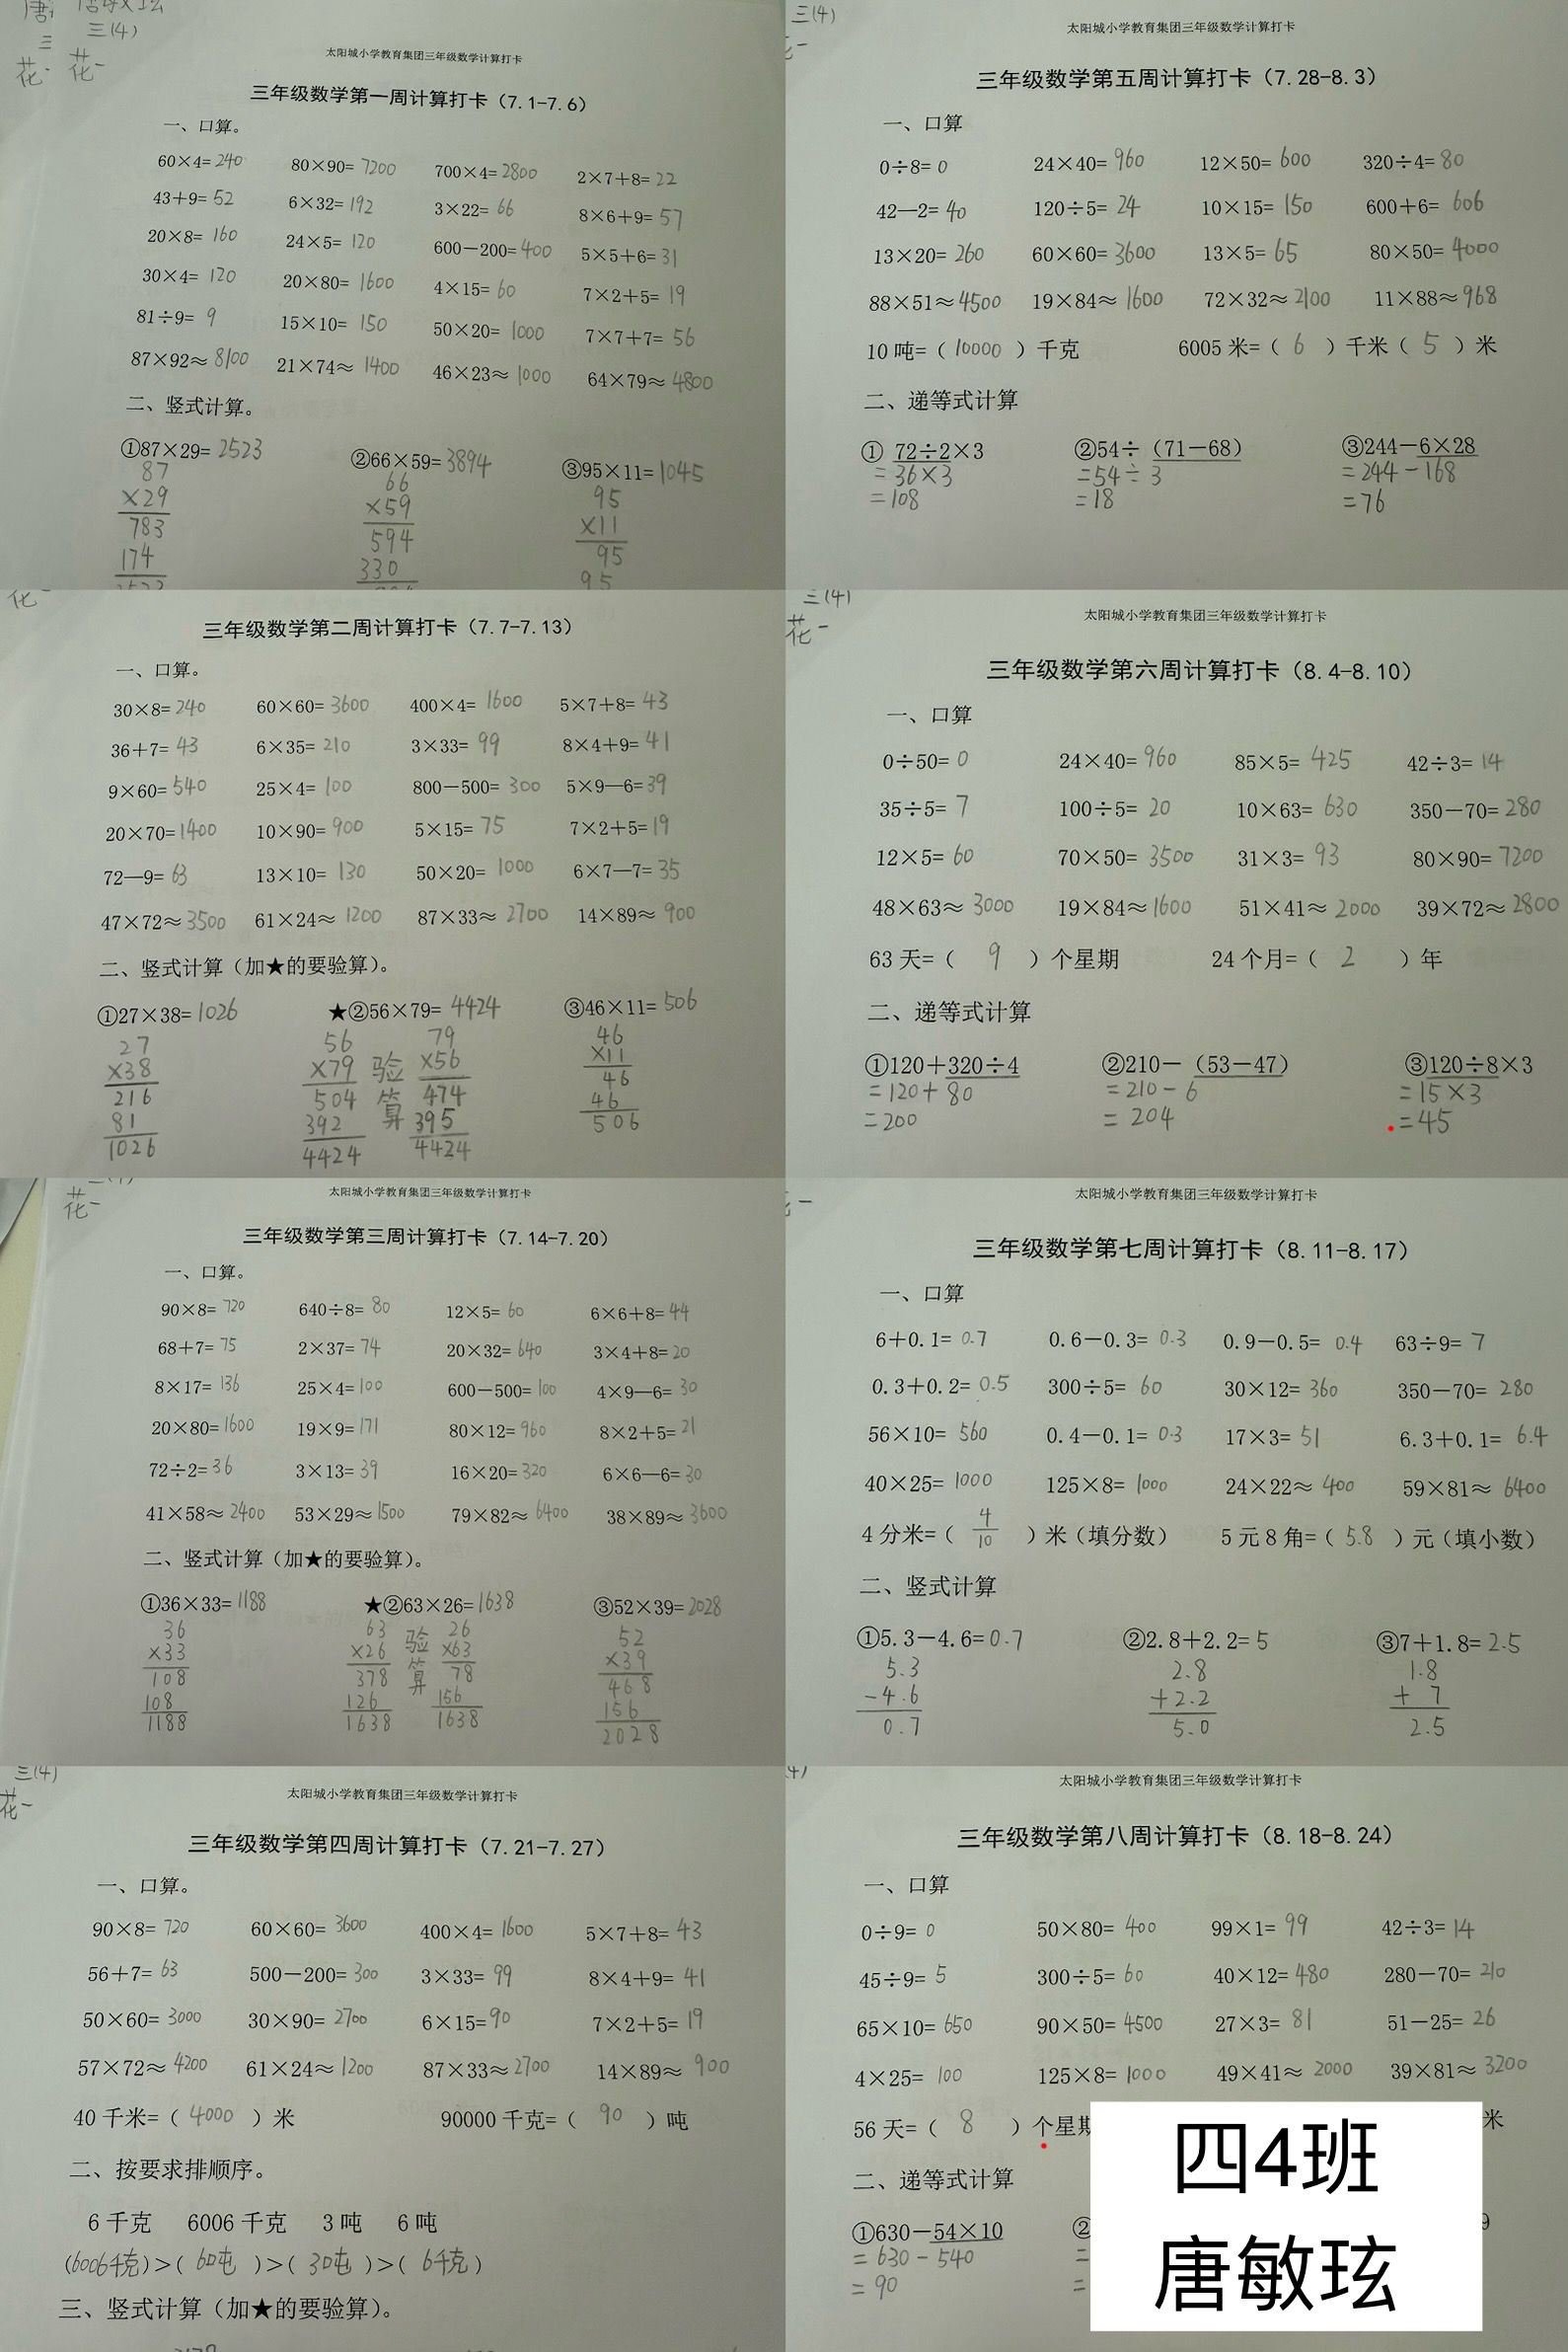 三(4)
花一
太阳城小学教育集团三年级数学计算打卡
三年级数学第一周计算打卡（7.1-7.6）
一、口算。
60×4=240 80×90=7200 700×4=2800 2×7+8=22
43+9=52 6×32=192 3×22=66 8×6+9=57
20×8=160 24×5=120 600-200=400 5×5+6=31
30×4=120 20×80=1600 4×15=60 7×2+5=19
81÷9=9 15×10=150 50×20=1000 7×7+7=56
87×92≈8100 21×74≈1400 46×23≈1000 64×79≈4800
二、竖式计算。
①87×29=2523 ②66×59=3894 ③95×11=1045
87 66 95
×29 ×59 ×11
783 594 95
174 330 95
三年级数学第二周计算打卡（7.7-7.13）
一、口算。
30×8=240 60×60=3600 400×4=1600 5×7+8=43
36+7=43 6×35=210 3×33=99 8×4+9=41
9×60=540 25×4=100 800-500=300 5×9—6=39
20×70=1400 10×90=900 5×15=75 7×2+5=19
72—9=63 13×10=130 50×20=1000 6×7—7=35
47×72≈3500 61×24≈1200 87×33≈2700 14×89≈900
二、竖式计算（加★的要验算）。
①27×38=1026 ★②56×79=4424 ③46×11=506
27 56 79 46
×38 ×79 验 ×56 ×11
216 504 算 474 46
81 392 395 46
1026 4424 4424 506
花一
太阳城小学教育集团三年级数学计算打卡
三年级数学第三周计算打卡（7.14-7.20）
一、口算。
90×8=720 640÷8=80 12×5=60 6×6+8=44
68+7=75 2×37=74 20×32=640 3×4+8=20
8×17=136 25×4=100 600-500=100 4×9—6=30
20×80=1600 19×9=171 80×12=960 8×2+5=21
72÷2=36 3×13=39 16×20=320 6×6—6=30
41×58≈2400 53×29≈1500 79×82≈6400 38×89≈3600
二、竖式计算（加★的要验算）。
①36×33=1188 ★②63×26=1638 ③52×39=2028
36 63 26 52
×33 ×26 验 ×63 ×39
108 378 算 78 468
108 126 156 156
1188 1638 1638 2028
三(4)
花一
太阳城小学教育集团三年级数学计算打卡
三年级数学第四周计算打卡（7.21-7.27）
一、口算。
90×8=720 60×60=3600 400×4=1600 5×7+8=43
56+7=63 500-200=300 3×33=99 8×4+9=41
50×60=3000 30×90=2700 6×15=90 7×2+5=19
57×72≈4200 61×24≈1200 87×33≈2700 14×89≈900
40千米=（4000）米 90000千克=（90）吨
二、按要求排顺序。
6千克 6006千克 3吨 6吨
(6006千克)>(6吨)>(3吨)>(6千克)
三、竖式计算（加★的要验算）。
三(4)
太阳城小学教育集团三年级数学计算打卡
三年级数学第五周计算打卡（7.28-8.3）
一、口算
0÷8=0 24×40=960 12×50=600 320÷4=80
42—2=40 120÷5=24 10×15=150 600+6=606
13×20=260 60×60=3600 13×5=65 80×50=4000
88×51≈4500 19×84≈1600 72×32≈2100 11×88≈968
10吨=（10000）千克 6005米=（6）千米（5）米
二、递等式计算
① 72÷2×3 ②54÷（71-68） ③244-6×28
=36×3 =54÷3 =244-168
=108 =18 =76
三(4)
花一
太阳城小学教育集团三年级数学计算打卡
三年级数学第六周计算打卡（8.4-8.10）
一、口算
0÷50=0 24×40=960 85×5=425 42÷3=14
35÷5=7 100÷5=20 10×63=630 350-70=280
12×5=60 70×50=3500 31×3=93 80×90=7200
48×63≈3000 19×84≈1600 51×41≈2000 39×72≈2800
63天=（9）个星期 24个月=（2）年
二、递等式计算
①120+320÷4 ②210-（53-47） ③120÷8×3
=120+80 =210-6 =15×3
=200 =204 =45
太阳城小学教育集团三年级数学计算打卡
三年级数学第七周计算打卡（8.11-8.17）
一、口算
6+0.1=0.7 0.6-0.3=0.3 0.9-0.5=0.4 63÷9=7
0.3+0.2=0.5 300÷5=60 30×12=360 350-70=280
56×10=560 0.4-0.1=0.3 17×3=51 6.3+0.1=6.4
40×25=1000 125×8=1000 24×22≈400 59×81≈6400
4分米=（4/10）米（填分数） 5元8角=（5.8）元（填小数）
二、竖式计算
①5.3-4.6=0.7 ②2.8+2.2=5 ③7+1.8=2.5
5.3 2.8 1.8
-4.6 +2.2 + 7
0.7 5.0 2.5
太阳城小学教育集团三年级数学计算打卡
三年级数学第八周计算打卡（8.18-8.24）
一、口算
0÷9=0 50×80=400 99×1=99 42÷3=14
45÷9=5 300÷5=60 40×12=480 280-70=210
65×10=650 90×50=4500 27×3=81 51-25=26
4×25=100 125×8=1000 49×41≈2000 39×81≈3200
56天=（8）个星期 米
二、递等式计算
①630-54×10 ② 9
=630-540 =
=90 =
四4班
唐敏玹